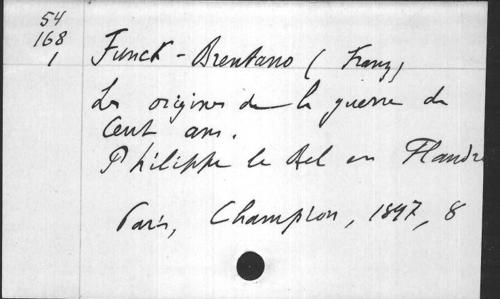 54
168
1
Funck-Brentano (Franz)
Les origines de la guerre de
Cent ans.
Philippe le Bel en Flandre
Paris, Champion, 1897, 8